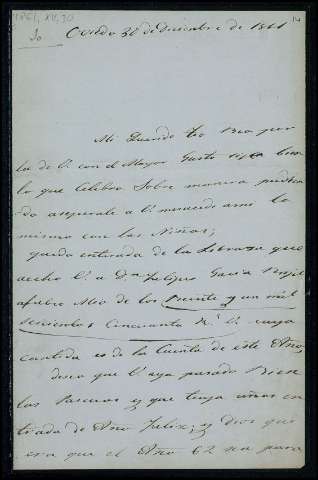 Oviedo 30 de Diciembre de 1861
Mi Querido tio Beo por
la de V. con el Mayor Gusto
lo que Celebro Sobre manera pudien
do asegurale a V. mi
mismo con las Niñas;
quedo enterada de la Libranza que
aecho V. a Dn Felipe Garcia
afabor Mio de los Treinta y un mil
seiscientos Cincuenta Rs. V. cuya
cantida es de la Cuenta de este Año,
deseo que V. aya pasado Bien
las Pascuas y que tenga una en
trada de Año Felix; y Dios que
era que el Año 62 no para